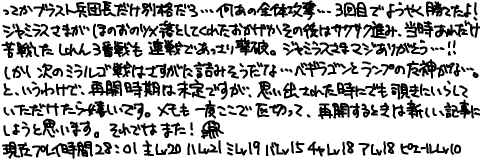 ってかブラスト兵団長だけ別格だろ…何あの全体攻撃…3回目でようやく勝てたよ!
ジャミラスさまが〈ほのおのツメ〉落としてくれたおかげかその後はサクサク進み、当時あんだけ
苦戦したしんりゅう3番戦も連戦であっさり撃破。ジャミラスさまマジありがとう…!!
しかし次のミラルゴ戦はさすがに詰みそうだな…ベギラゴンとランプの魔神がな…。
と、いうわけで、再開時期は未定ですが、思い出された時にでも覗きにいらして
いただけたら嬉しいです。メモも一度ここで区切って、再開するときは新しい記事に
しようと思います。それではまた!
現在プレイ時間28:01 主Lv20 ハLv21 ミLv19 バLv15 チャLv18 アLv18 ピエールLv10